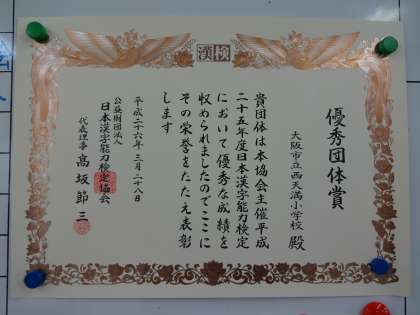 漢検
優秀団体賞
大阪市立西天満小学校 殿
貴団体は本協会主催平成
二十五年度日本漢字能力検定
において優秀な成績を
収められましたのでここに
その栄誉をたたえ表彰
します
平成二十六年 三月 二十八日
公益財団法人
日本漢字能力検定協会
代表理事 髙坂 節三